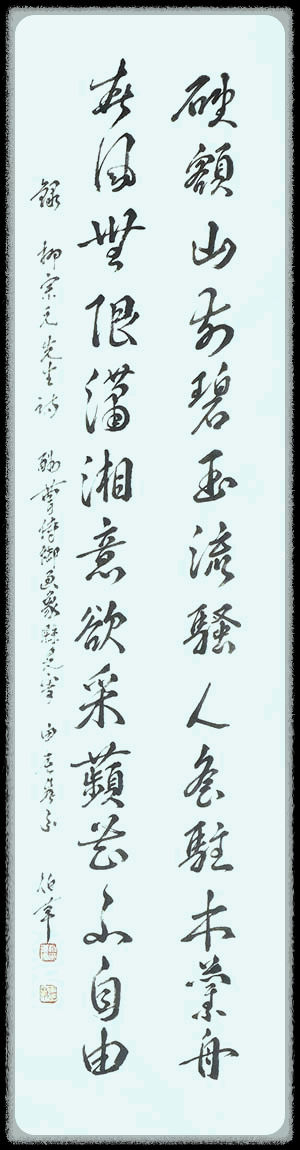 破額山前碧玉流騷人遙駐木蘭舟
春風無限瀟湘意欲采蘋花不自由
錄 柳宗元先生詩 酬曹侍御過象縣見寄